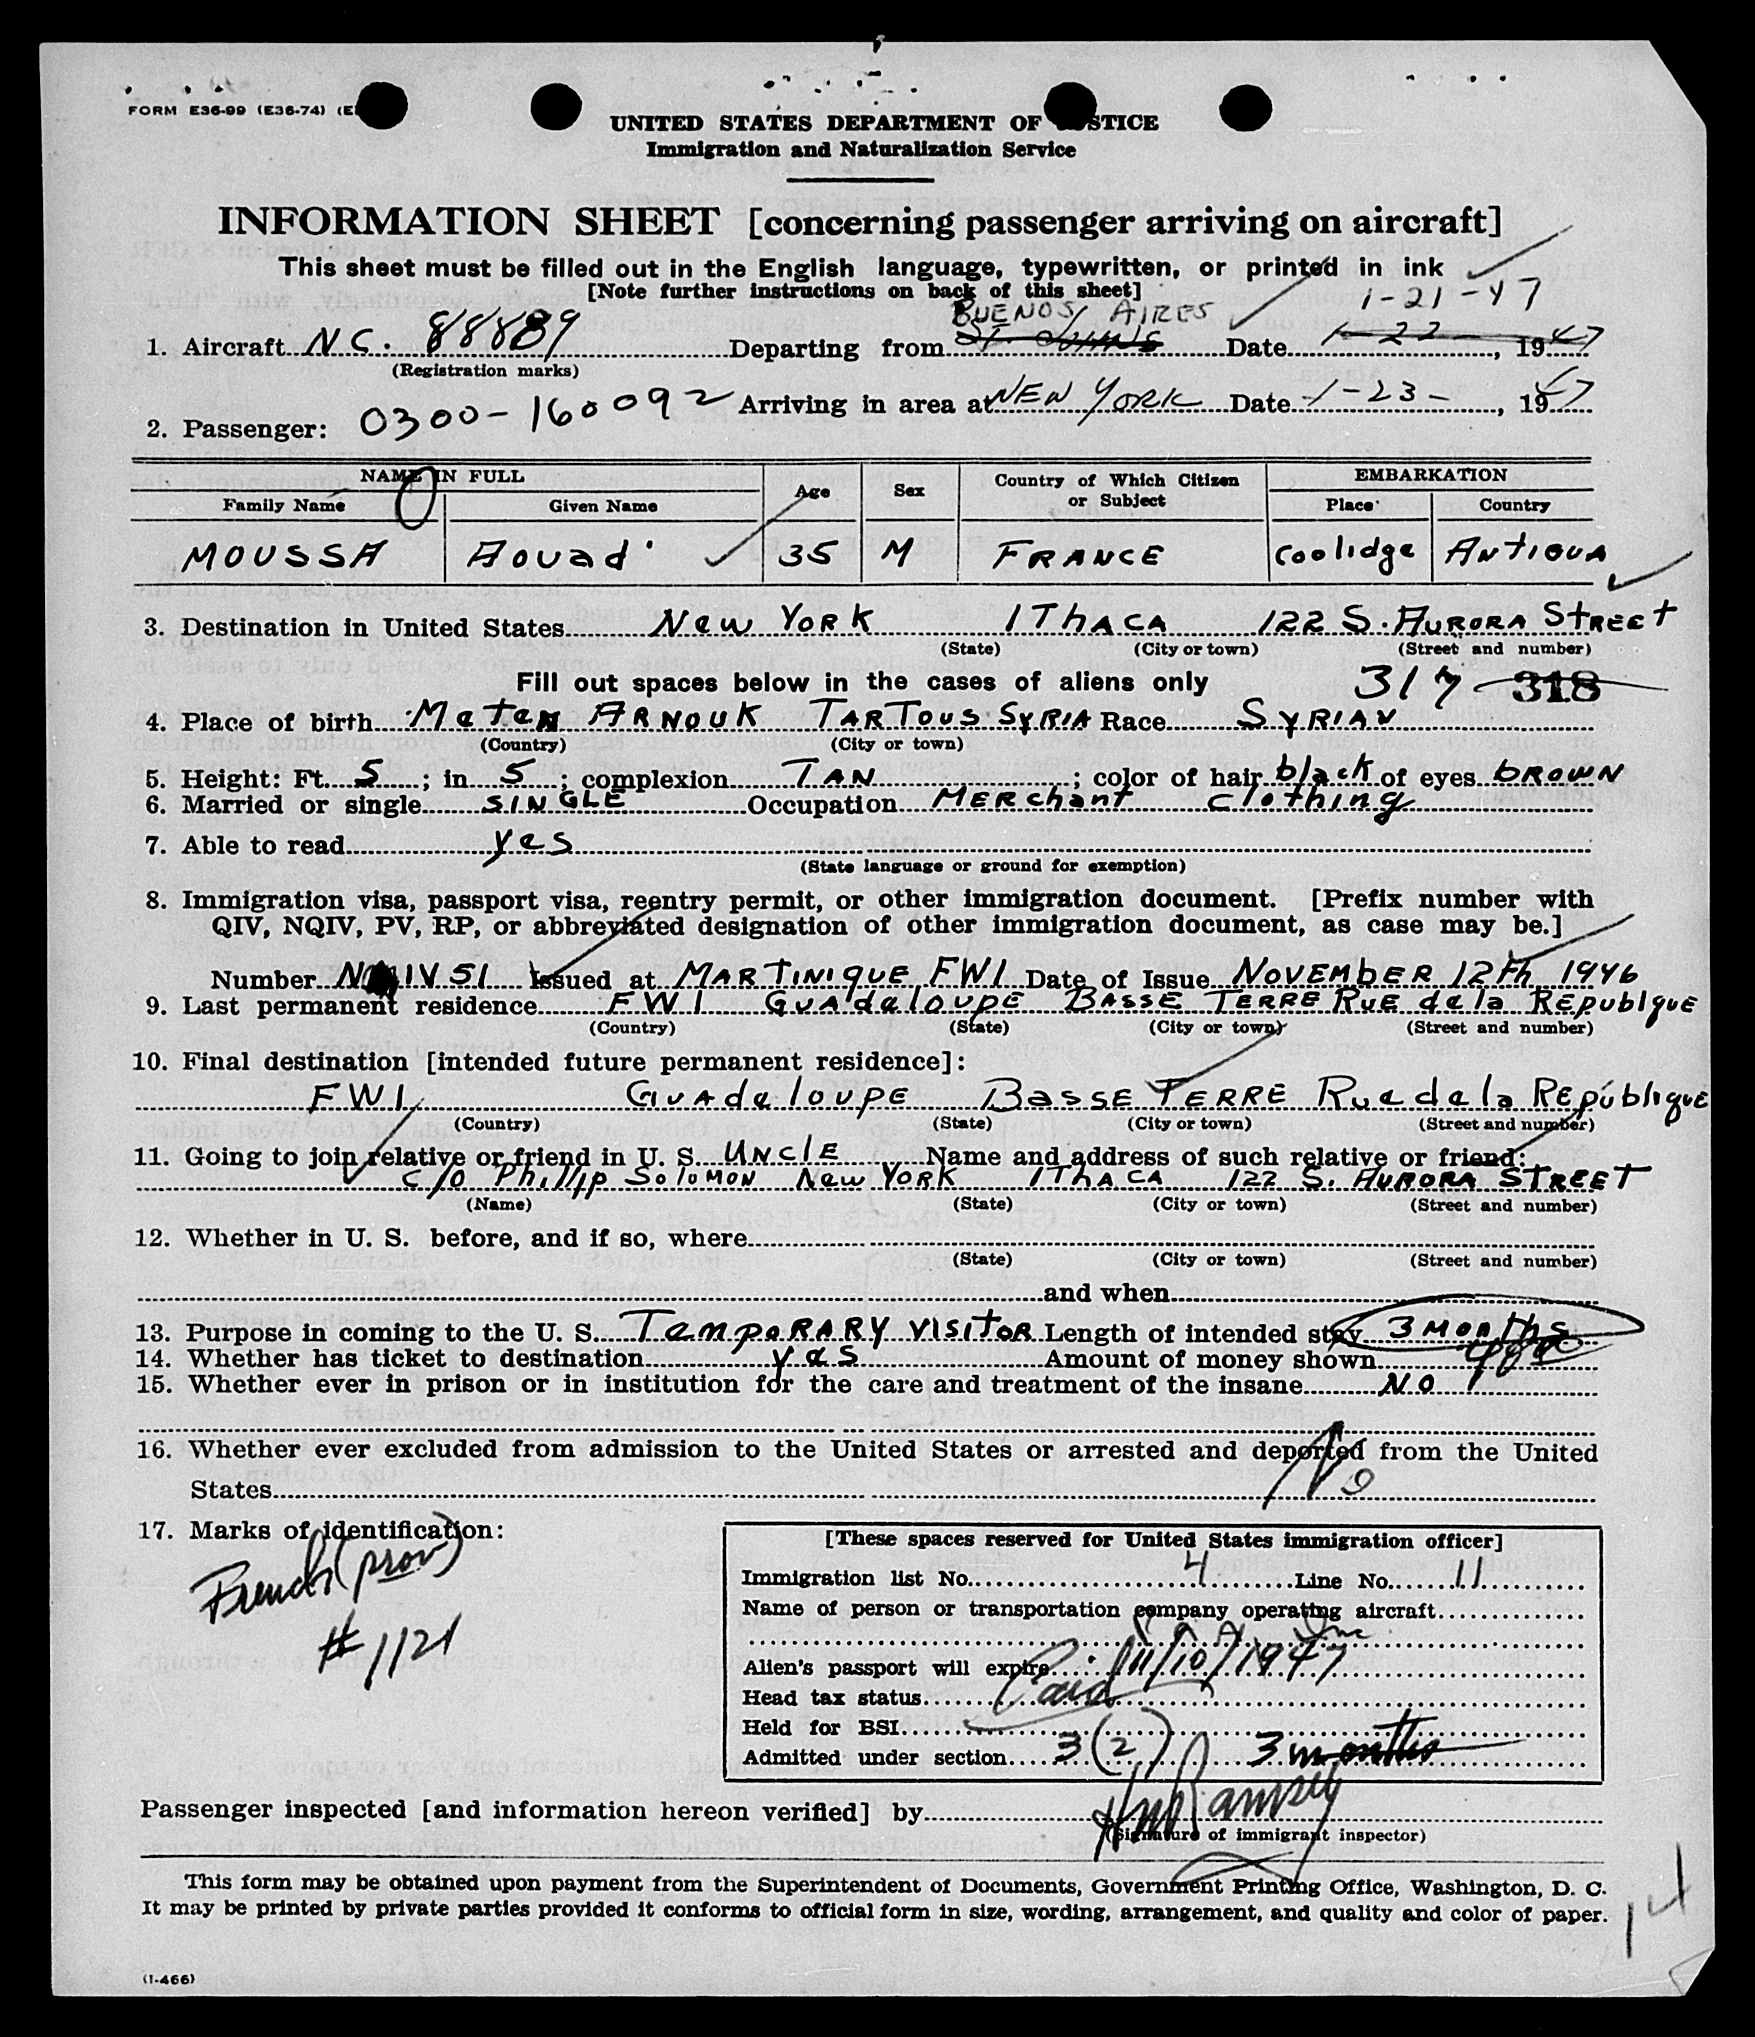 FORM E36-99 (E36-74) (E
UNITED STATES DEPARTMENT OF JUSTICE
Immigration and Naturalization Service
INFORMATION SHEET [concerning passenger arriving on aircraft]
This sheet must be filled out in the English language, typewritten, or printed in ink
[Note further instructions on back of this sheet]
BUENOS AIRES 1-21-47
1. Aircraft NC. 88889 Departing from ST. JOHNS Date 1-22-, 1947
(Registration marks)
0300-160092 Arriving in area at NEW YORK Date 1-23-, 1947
2. Passenger:
NAME IN FULL Age Sex Country of Which Citizen or Subject EMBARKATION
Family Name Given Name Place Country
MOUSSA Aouad 35 M FRANCE Coolidge ANTIGUA
3. Destination in United States New YORK ITHACA 122 S. AURORA STREET
(State) (City or town) (Street and number)
Fill out spaces below in the cases of aliens only 317 318
4. Place of birth Meten ARNOUK TARTOUS SYRIA Race SYRIAN
(Country) (City or town)
5. Height: Ft. 5; in 5; complexion TAN; color of hair black of eyes BROWN
6. Married or single SINGLE Occupation MERchant clothing
7. Able to read yes
(State language or ground for exemption)
8. Immigration visa, passport visa, reentry permit, or other immigration document. [Prefix number with
QIV, NQIV, PV, RP, or abbreviated designation of other immigration document, as case may be.]
Number IV 51 Issued at MARTINIQUE FWI Date of Issue NOVEMBER 12th 1946
9. Last permanent residence FWI GUAdeloupe BASSE TERRE Rue de la Republque
(Country) (State) (City or town) (Street and number)
10. Final destination [intended future permanent residence]:
FWI GUAdeloupe BASSE TERRE Rue de la République
(Country) (State) (City or town) (Street and number)
11. Going to join relative or friend in U. S. UNCLE Name and address of such relative or friend:
c/o Phillip Solomon New YORK ITHACA 122 S. AURORA STREET
(Name) (State) (City or town) (Street and number)
12. Whether in U. S. before, and if so, where
(State) (City or town) (Street and number)
and when
13. Purpose in coming to the U. S. TemPORARY VISITOR Length of intended stay 3 Months
14. Whether has ticket to destination yes Amount of money shown
15. Whether ever in prison or in institution for the care and treatment of the insane NO
16. Whether ever excluded from admission to the United States or arrested and deported from the United
States No
17. Marks of identification:
French (prov)
#1121
[These spaces reserved for United States immigration officer]
Immigration list No. 4 Line No. 11
Name of person or transportation company operating aircraft
P A A Inc
Alien's passport will expire 11/10/1947
Head tax status Paid
Held for BSI
Admitted under section 3(2) 3 months
Passenger inspected [and information hereon verified] by HM Ramsey
(Signature of immigrant inspector)
This form may be obtained upon payment from the Superintendent of Documents, Government Printing Office, Washington, D. C.
It may be printed by private parties provided it conforms to official form in size, wording, arrangement, and quality and color of paper.
14
(I-466)